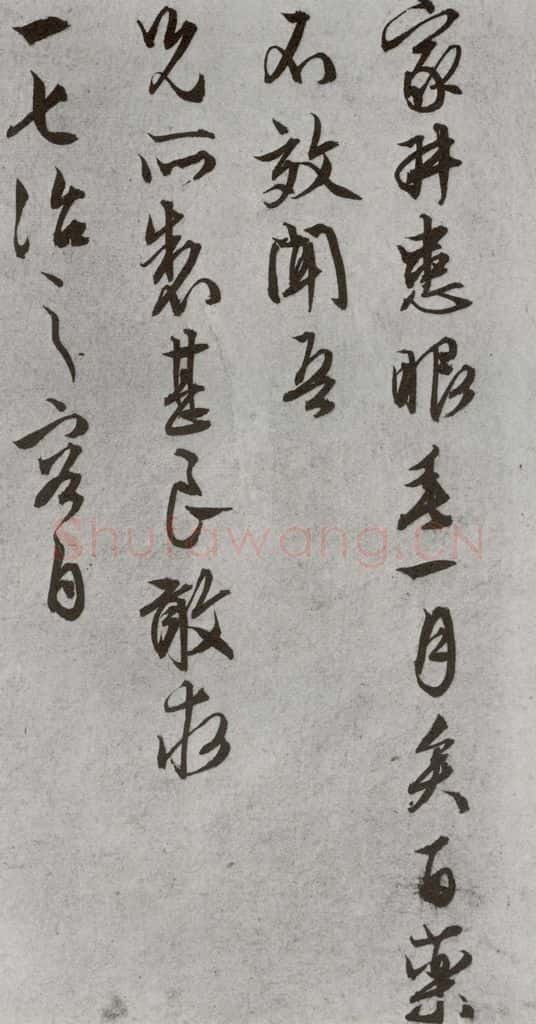 家患眼垂一月矣百藥
不效聞吾
兄所製甚良敢求
一匕治之容白
Shufawang.CN